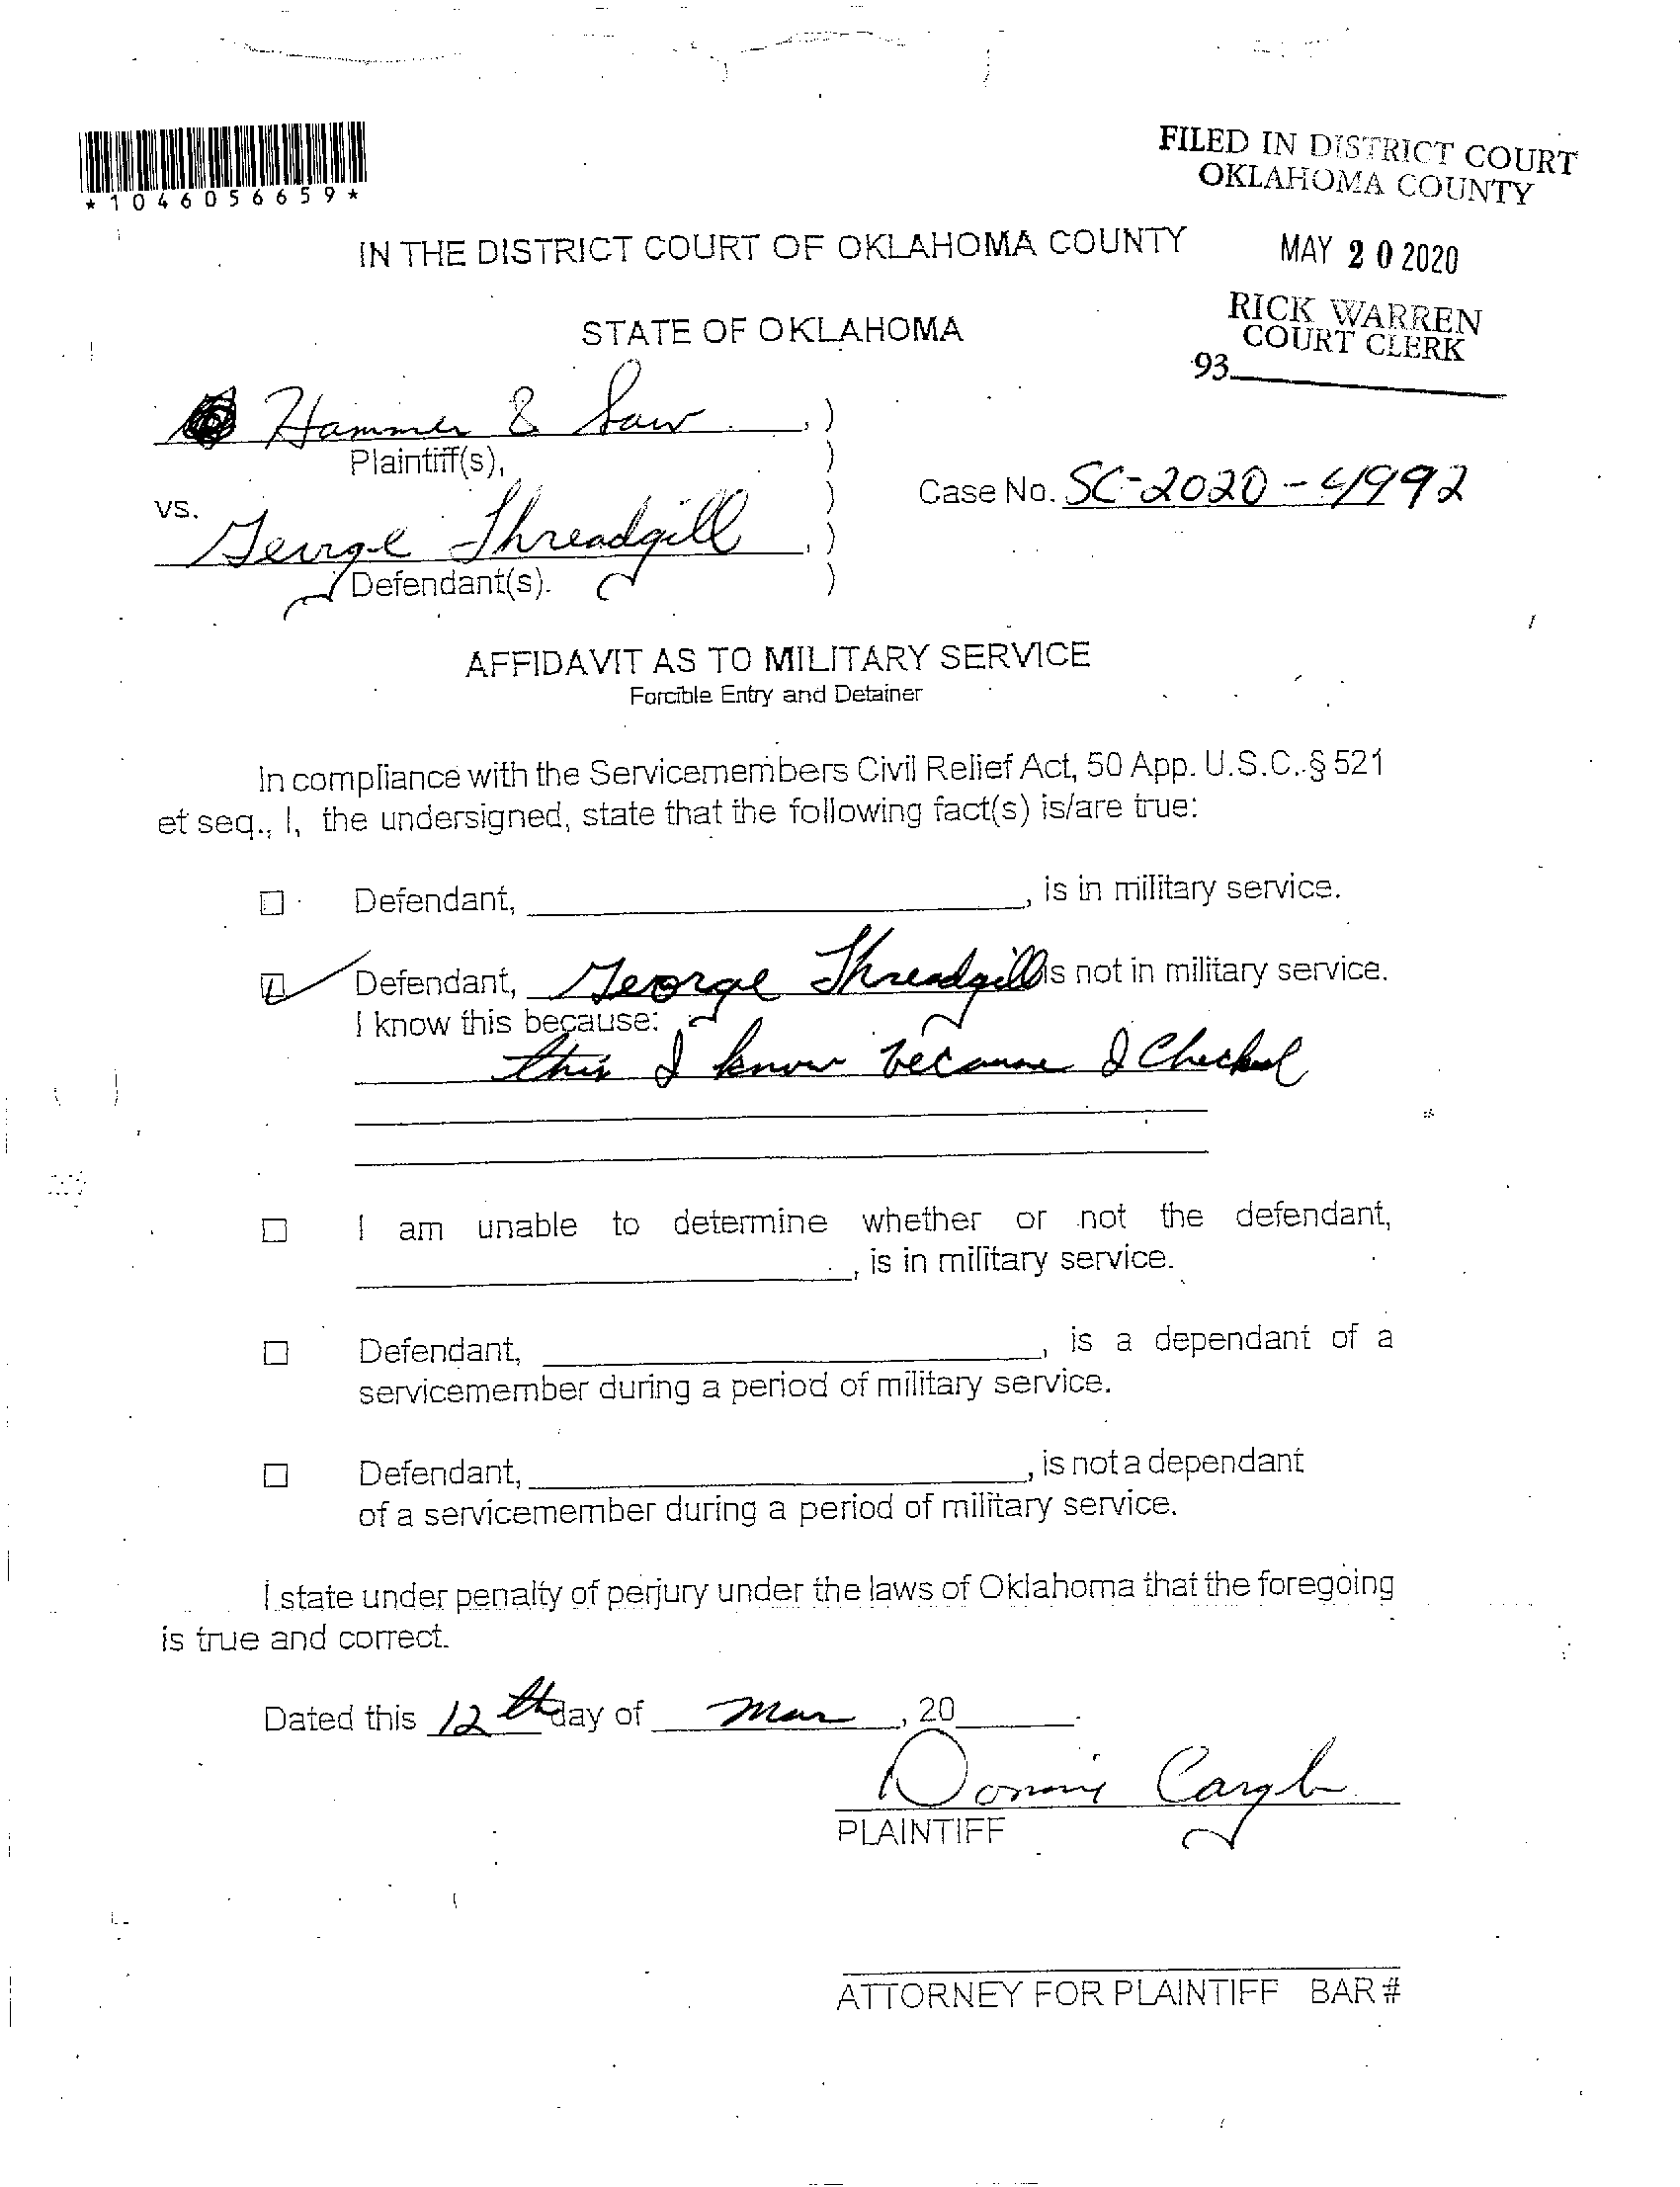 FILED IN DISTRICT COURT
OKLAHOMA COUNTY
*1046056659*
MAY 20 2020
IN THE DISTRICT COURT OF OKLAHOMA COUNTY
RICK WARREN
COURT CLERK
STATE OF OKLAHOMA
93
Hammer & Saw, )
Plaintiff(s), )
vs. ) Case No. SC-2020-4992
George Threadgill, )
Defendant(s). )
AFFIDAVIT AS TO MILITARY SERVICE
Forcible Entry and Detainer
In compliance with the Servicemembers Civil Relief Act, 50 App. U.S.C. § 521
et seq., I, the undersigned, state that the following fact(s) is/are true:
Defendant, , is in military service.
Defendant, George Threadgill is not in military service.
I know this because:
this I know because I Checked
I am unable to determine whether or not the defendant,
, is in military service.
Defendant, , is a dependant of a
servicemember during a period of military service.
Defendant, , is not a dependant
of a servicemember during a period of military service.
I state under penalty of perjury under the laws of Oklahoma that the foregoing
is true and correct.
Dated this 12th day of Mar, 20
Donnie
PLAINTIFF
ATTORNEY FOR PLAINTIFF BAR #